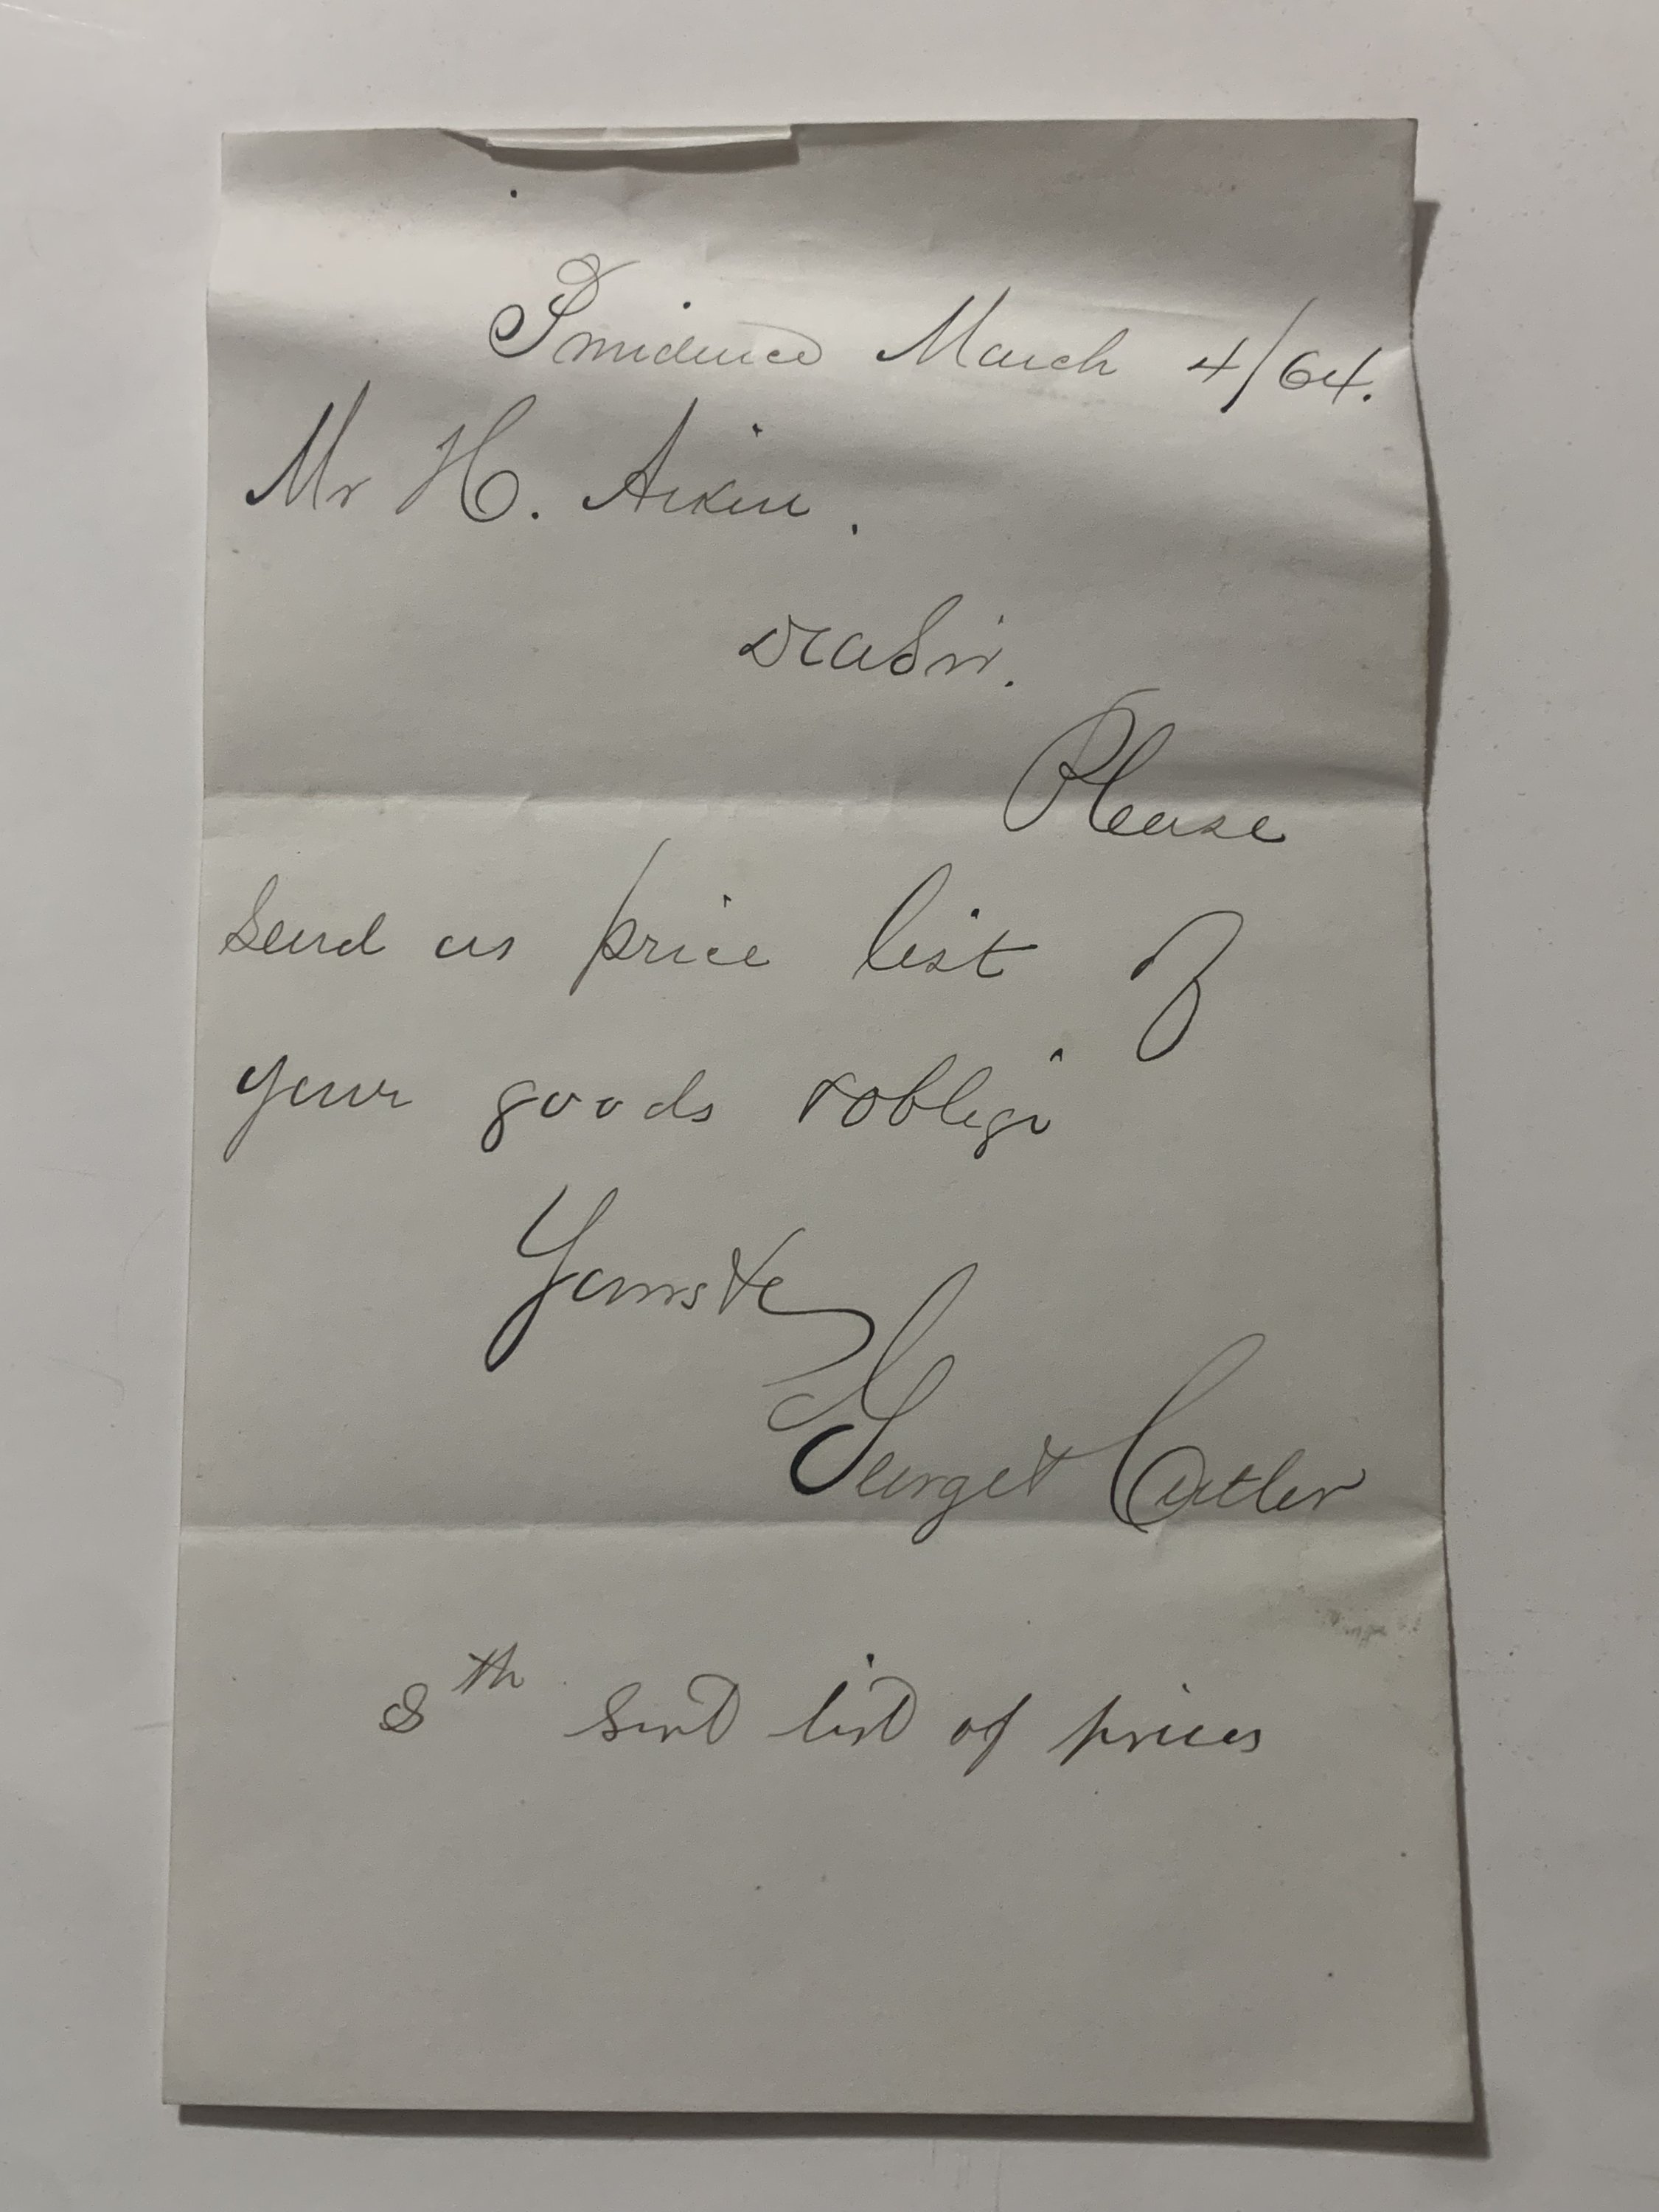 Providence March 4/64.
Mr H. Aiken.
Dear Sir.
Please
send us price list of
your goods & oblige
Yours &c
George & Cutler
8th Sent list of prices